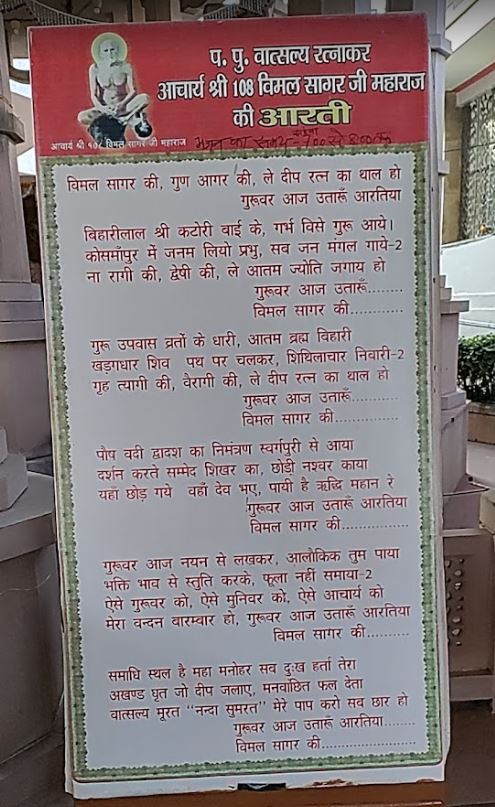 प. पु. वात्सल्य रत्नाकर
आचार्य श्री 108 विमल सागर जी महाराज
की आरती
आचार्य श्री १०८ विमल सागर जी महाराज
का समय - 7.00 से 8.00 तक
विमल सागर की, गुण आगर की, ले दीप रत्न का थाल हो
गुरूवर आज उतारूँ आरतिया
बिहारीलाल श्री कटोरी बाई के, गर्भ विसे गुरू आये।
कोसमाँपुर में जनम लियो प्रभु, सब जन मंगल गाये-2
ना रागी की, द्वेषी की, ले आतम ज्योति जगाय हो
गुरूवर आज उतारूँ........
विमल सागर की............
गुरू उपवास व्रतों के धारी, आतम ब्रह्म विहारी
खड़गधार शिव पथ पर चलकर, शिथिलाचार निवारी-2
गृह त्यागी की, वैरागी की, ले दीप रत्न का थाल हो
गुरूवर आज उतारूँ...........
विमल सागर की..............
पौष वदी द्वादश का निमंत्रण स्वर्गपुरी से आया
दर्शन करते सम्मेद शिखर का, छोडी नश्वर काया
यहाँ छोड़ गये वहाँ देव भए, पायी है ऋद्धि महान रे
गुरूवर आज उतारूँ आरतिया
विमल सागर की...............
गुरूवर आज नयन से लखकर, आलौकिक तुम पाया
भक्ति भाव से स्तुति करके, फूला नहीं समाया-2
ऐसे गुरूवर को, ऐसे मुनिवर को, ऐसे आचार्य को
मेरा वन्दन बारम्बार हो, गुरूवर आज उतारूँ आरतिया
विमल सागर की..........
समाधि स्थल है महा मनोहर सब दुःख हर्ता तेरा
अखण्ड घृत जो दीप जलाए, मनवांछित फल देता
वात्सल्य मूरत "नन्दा सुमरत" मेरे पाप करो सब छार हो
गुरूवर आज उतारूँ आरतिया.......
विमल सागर की.....................